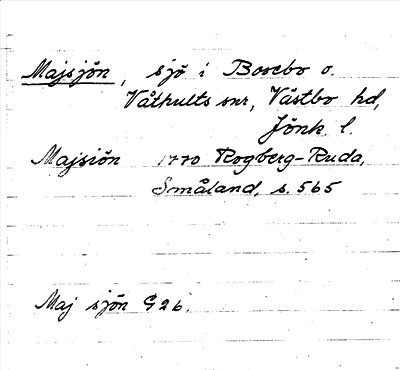 Majsjön, sjö i Bosebo o.
Våthults snr, Västbo hd,
Jönk. l.
Majsiön 1770 Rogberg-Ruda,
Småland, s. 565
Maj sjön G26.